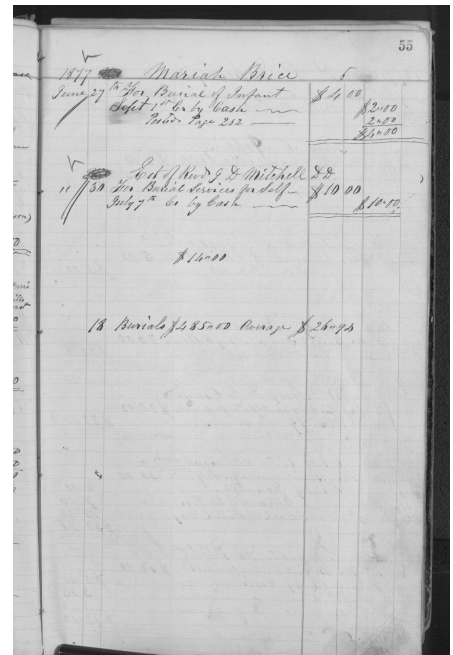 55
1877 Mariah Brice
June 27th For Burial of Infant $4 00
Sept 1st Cr by Cash $2"00
Posted Page 252 2"00
$4"00
Est of Revd G D Mitchell DD
" 30 For Burial Services for Self $10 00
July 7th Cr by Cash $10"00
$14"00
18 Burials $485"00 Average $26"94